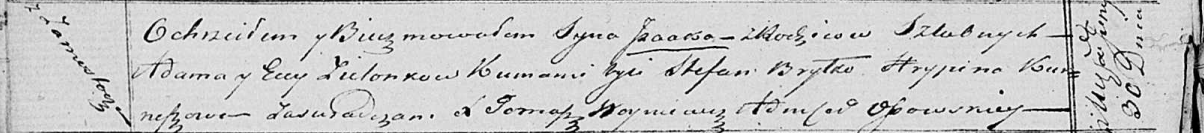 z Zamosza
Ochrzciłem y Bierzmowałem Syna Jsaaka – z Rodziców Szlubnych –
Adama y Ewy Zielonków Kumami byli Stefan Brytko Hrypina Kur=
neszowa – Zaswiadczam X Tomasz Woyniewicz Adm: Cer: Osowskiey –
30 Dnia